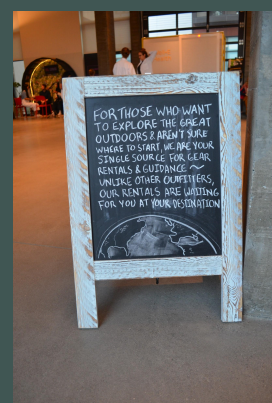 FOR THOSE WHO WANT
TO EXPLORE THE GREAT
OUTDOORS & AREN'T SURE
WHERE TO START, WE ARE YOUR
SINGLE SOURCE FOR GEAR
RENTALS & GUIDANCE ~
UNLIKE OTHER OUTFITTERS,
OUR RENTALS ARE WAITING
FOR YOU AT YOUR DESTINATION